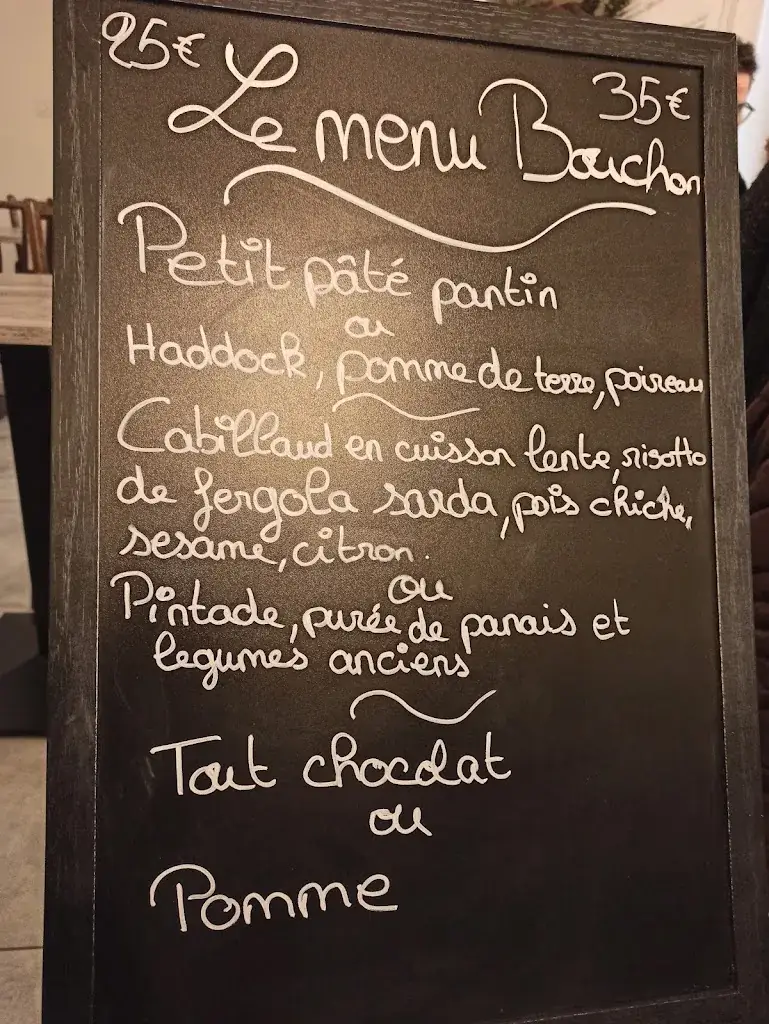 25€ 35€
Le menu Bouchon
Petit pâté pantin
ou
Haddock, pomme de terre, poireau
Cabillaud en cuisson lente, risotto
de fergola sarda, pois chiche,
sesame, citron.
ou
Pintade, purée de panais et
legumes anciens
Tout chocolat
ou
Pomme